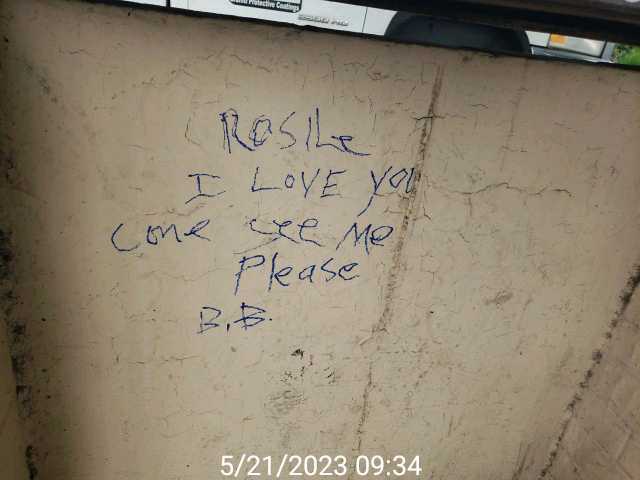 Protective Coatings
2500 HD
ROSILe
I LOVE YOU
COME see Me
Please
B.B.
5/21/2023 09:34